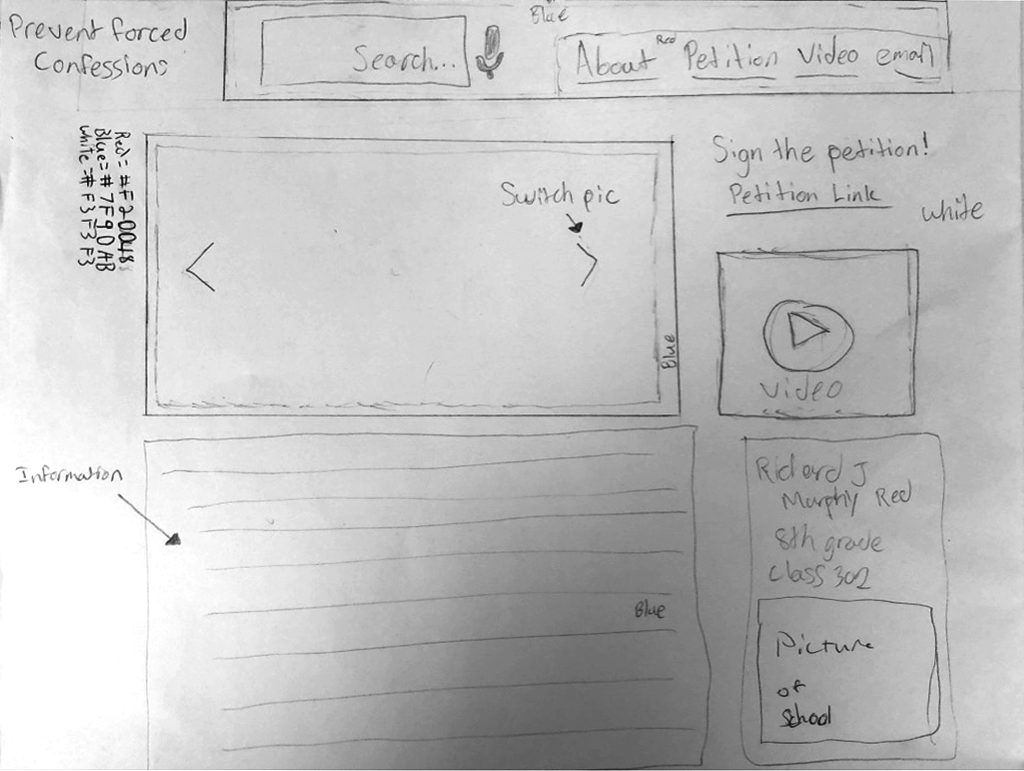 Prevent forced
Confessions
Blue
Search...
Red
About Petition Video email
Red = #F20048
Blue = #7F90AB
White = #F3F3F3
Switch pic
Blue
Sign the petition!
Petition Link
white
video
Information
Blue
Richard J
Murphy Red
8th grade
Class 302
Picture
of
School